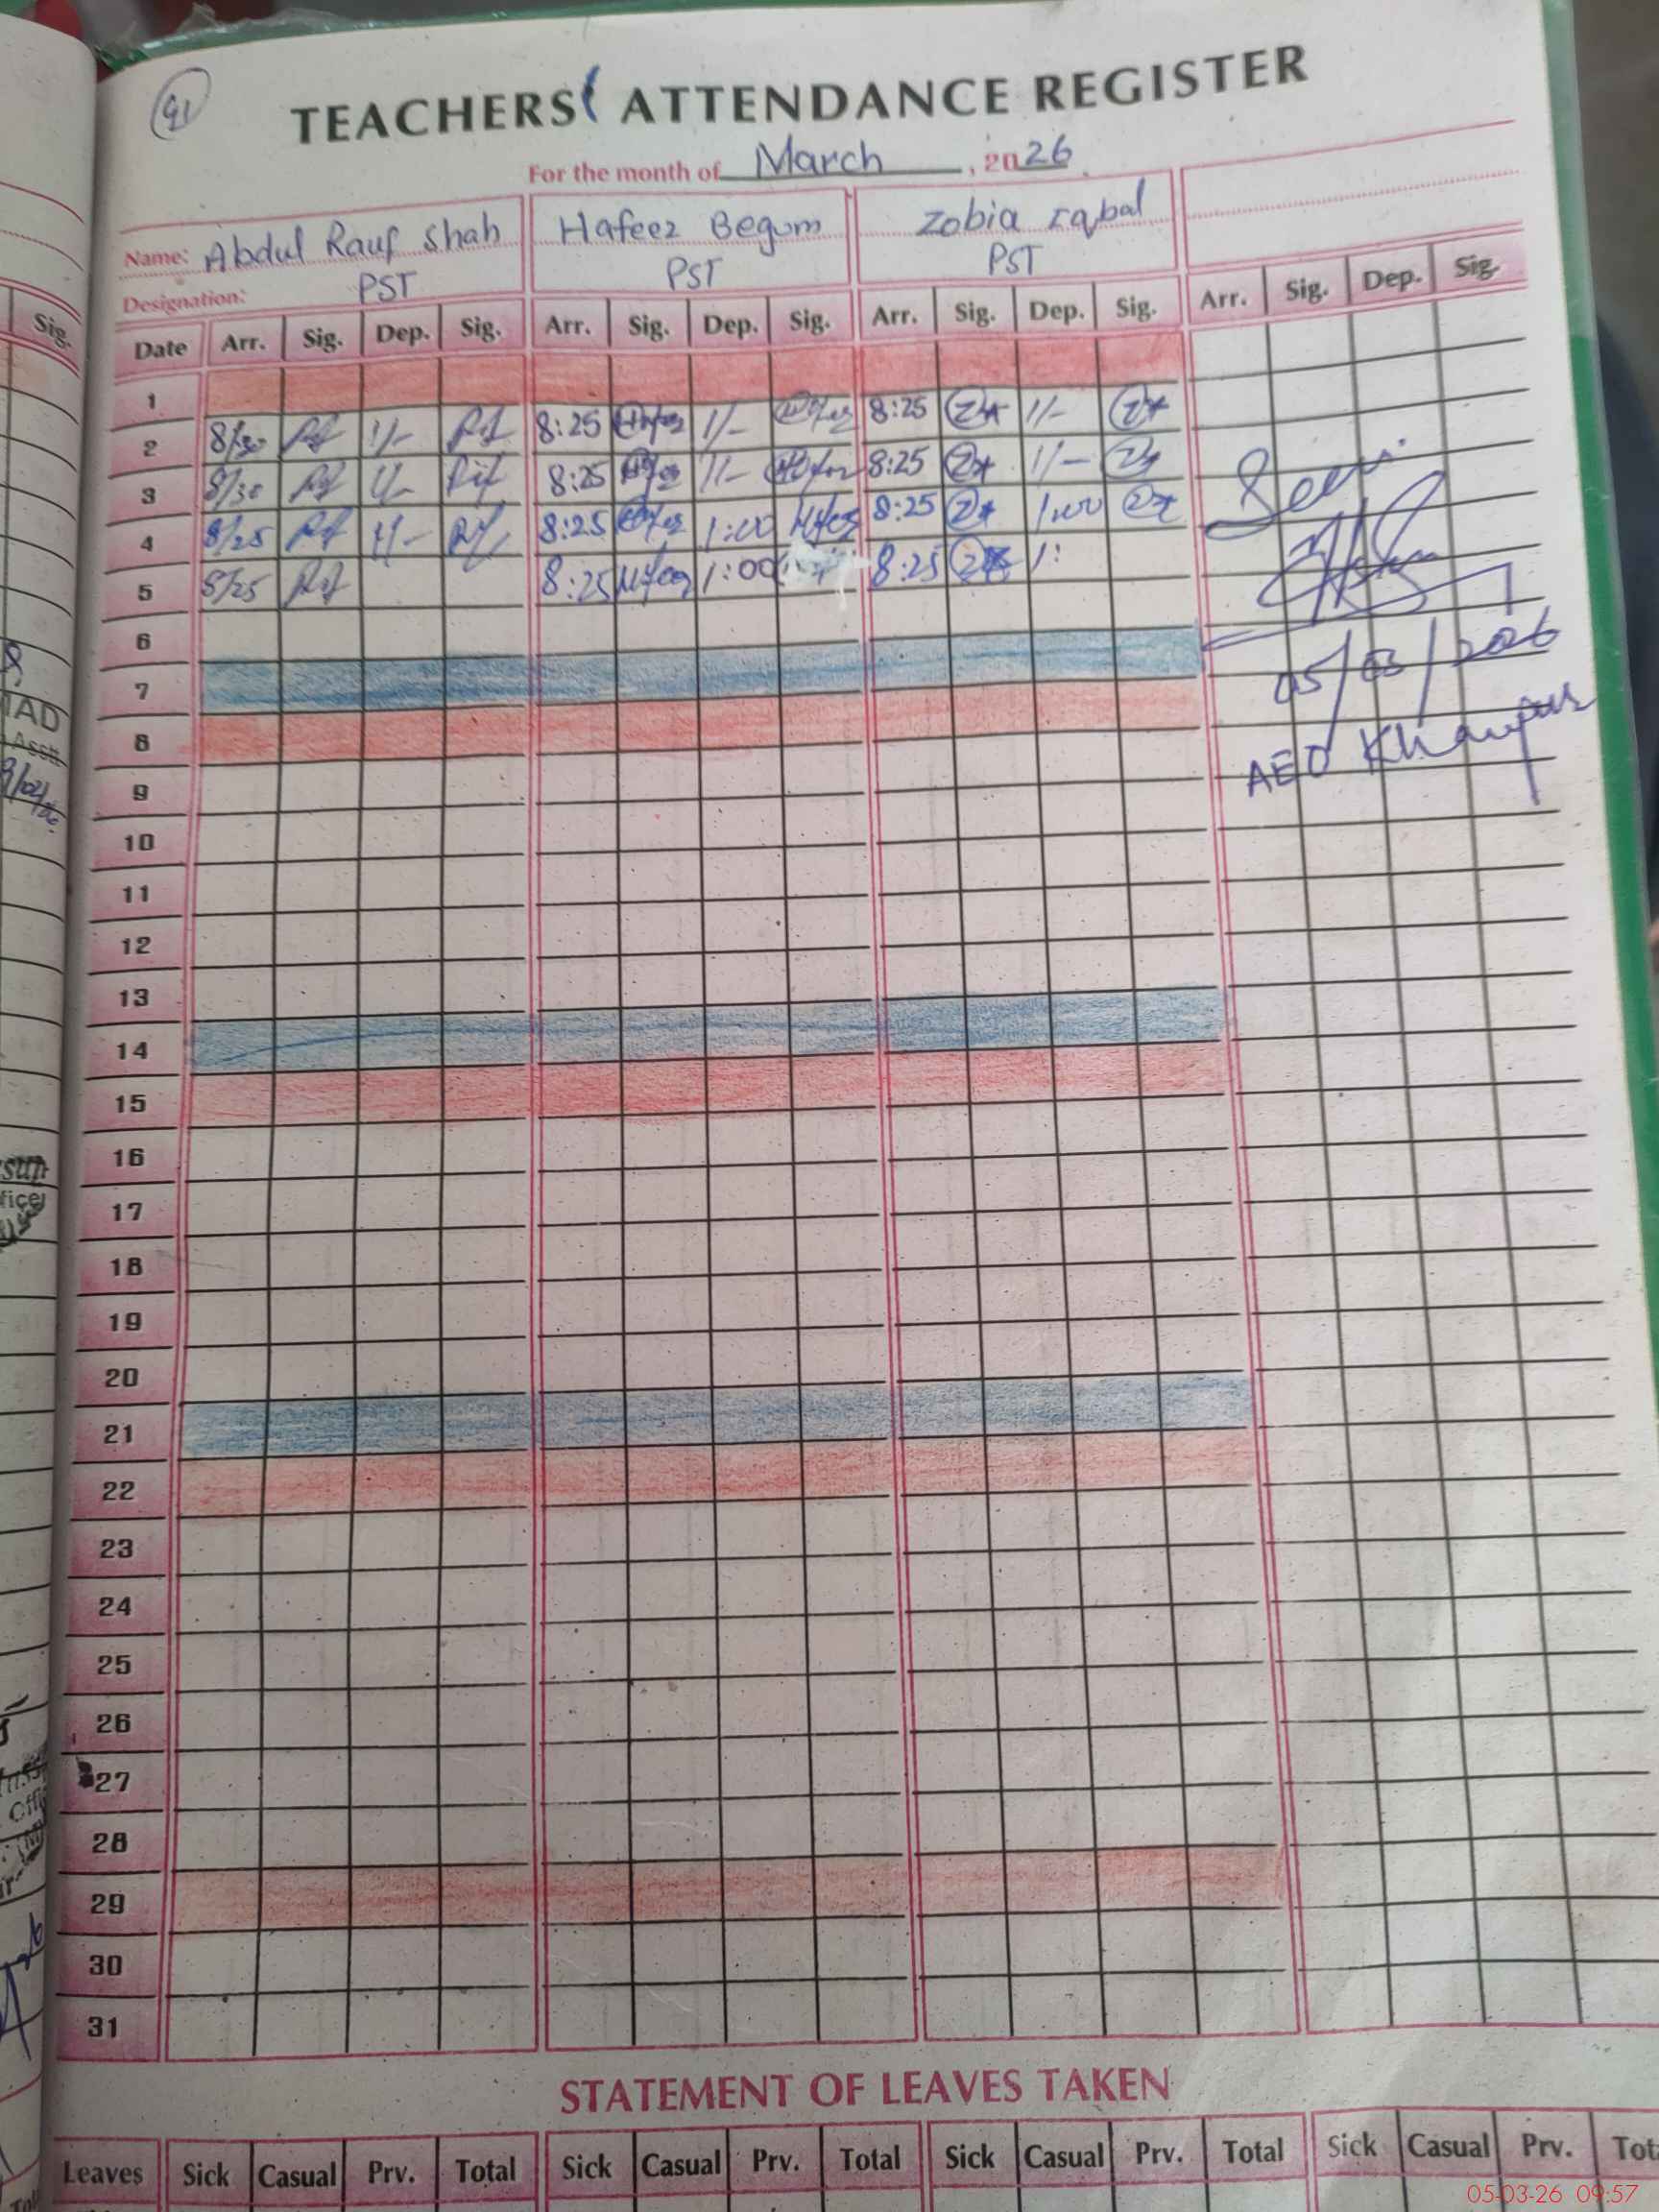 91
TEACHERS' ATTENDANCE REGISTER
For the month of March, 2026
Name: Abdul Rauf Shah Hafeez Begum Zobia Iqbal
Designation: PST PST PST
Date Arr. Sig. Dep. Sig. Arr. Sig. Dep. Sig. Arr. Sig. Dep. Sig. Arr. Sig. Dep. Sig.
1
2 8/30 1/- 8:25 1/- 8:25 1/-
3 8/30 1/- 8:25 1/- 8:25 1/-
4 8/25 1/- 8:25 1:00 8:25 1:00
5 8/25 8:25 1:00 8:25 1:
6
7
8
9
10
11
12
13
14
15
16
17
18
19
20
21
22
23
24
25
26
27
28
29
30
31
05/03/2026
AEO Khanpur
STATEMENT OF LEAVES TAKEN
Leaves Sick Casual Prv. Total Sick Casual Prv. Total Sick Casual Prv. Total Sick Casual Prv. Tot
Sig.
IAD
Asstt
05-03-26 09:57